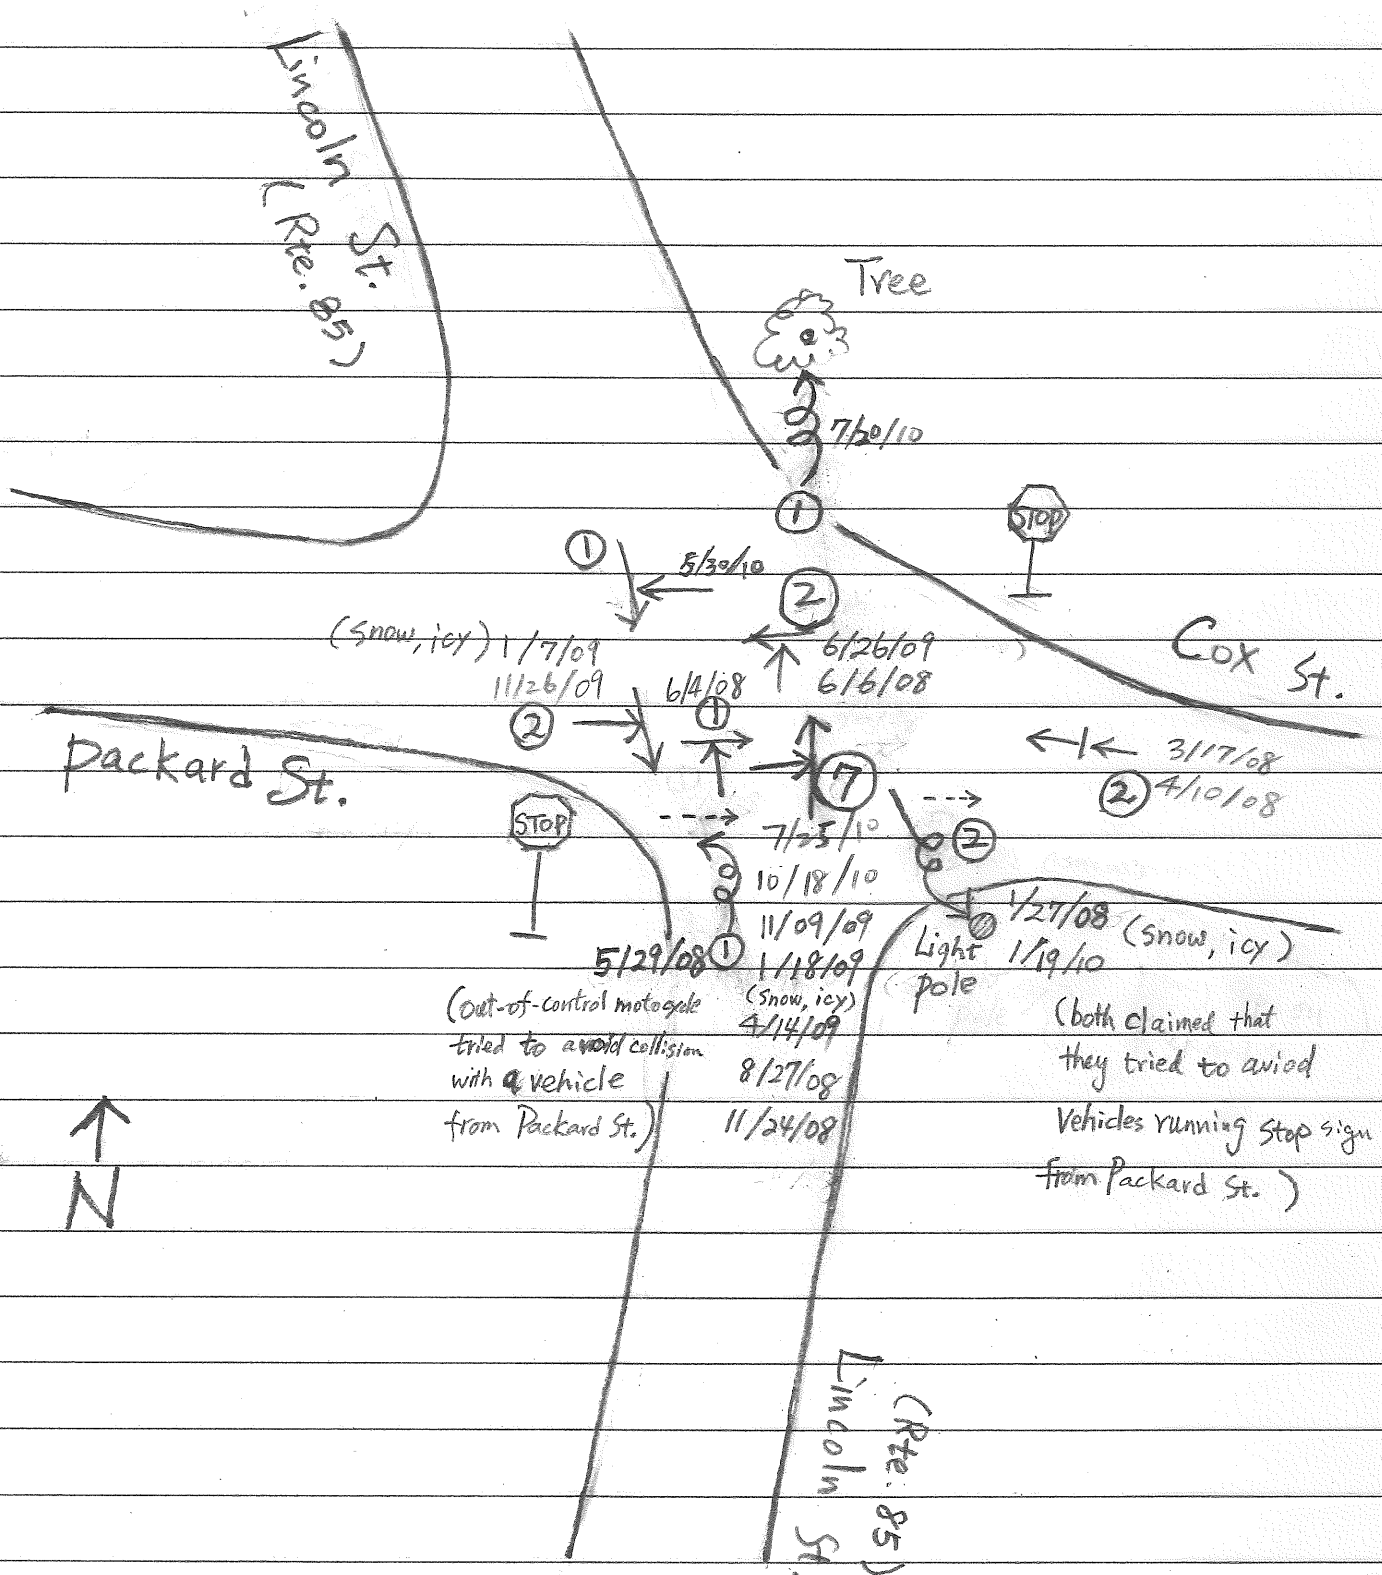 Lincoln St.
(Rte. 85)
Tree
7/20/10
1
STOP
1
5/30/10
2
(snow, icy) 1/7/09
11/26/09
2
6/4/08
1
6/26/09
6/6/08
Cox St.
Packard St.
STOP
7
3/17/08
2 4/10/08
2
7/25/10
10/18/10
11/09/09
1/18/09
(snow, icy)
4/14/09
8/27/08
11/24/08
5/29/08 1
(out-of-control motocycle
tried to avoid collision
with a vehicle
from Packard St.)
Light
pole
1/27/08
1/19/10
(snow, icy)
(both claimed that
they tried to aviod
vehicles running stop sign
from Packard St.)
N
(Rte. 85)
Lincoln St.